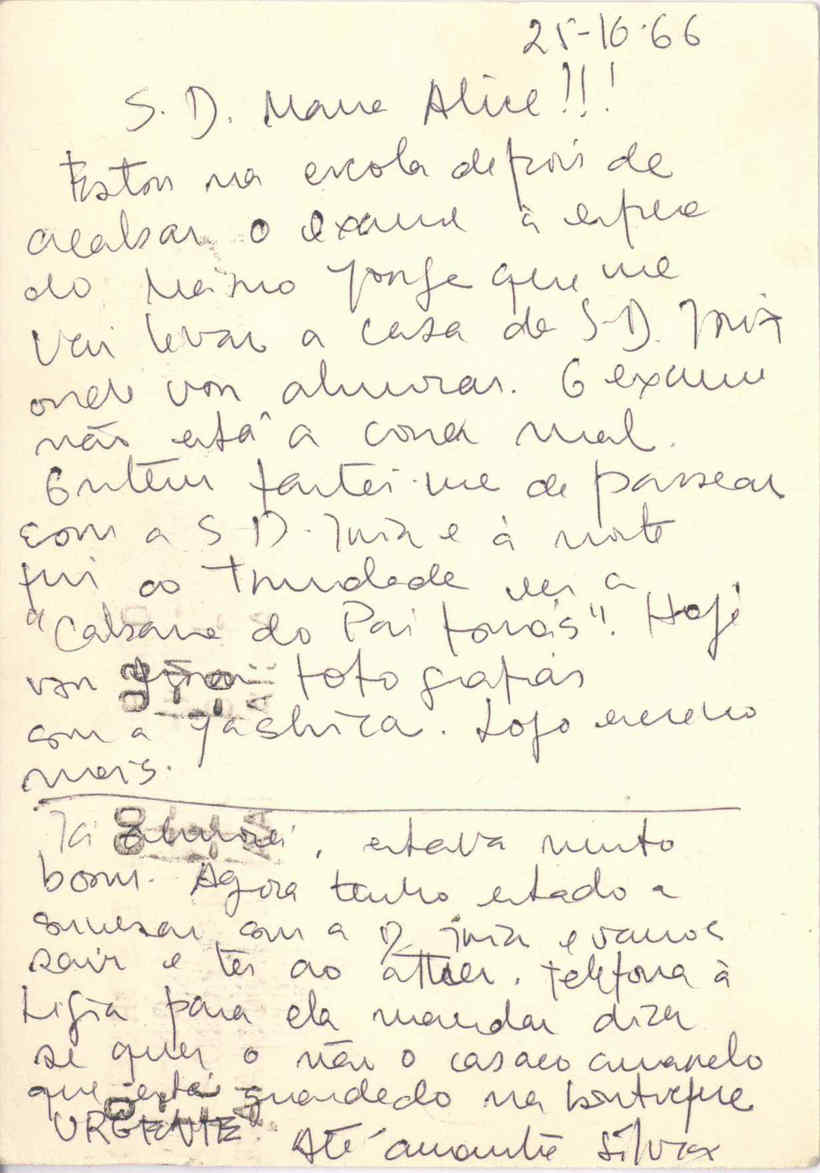 25-10-66
S. D. Maria Alice!!!
Estou na escola depois de
acabar o exame à espera
do Jorge que me
vai levar a casa de S. D. Inix
onde vou almoçar. O exame
não está a correr mal.
Ontem fartei-me de passear
com a S. D. Inix e à noite
fui ao Trindade ver a
"Cabana do Pai Tomás". Hoje
vou tirar fotografias
com a Yashica. Logo escrevo
mais.
Já almocei, estava muito
bom. Agora tenho estado a
conversar com a D. Inix e vamos
sair e ter ao atlier. Telefona à
Ligia para ela mandar dizer
se quer o não o casaco amarelo
que está guardado na boutique
URGENTE. Até amanhã Silvia